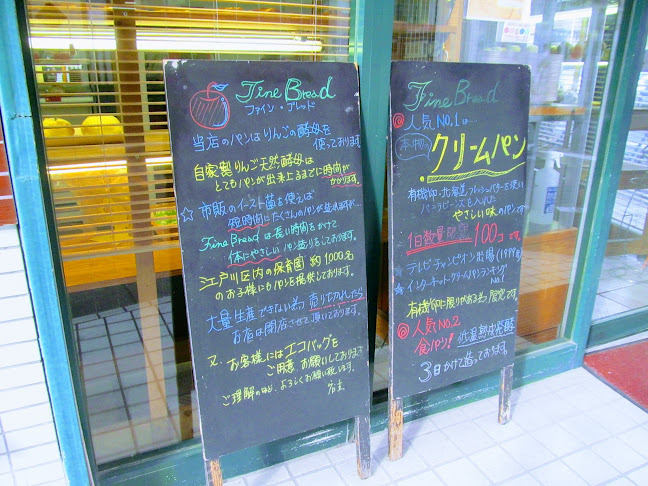 Fine Bread
ファイン・ブレッド
当店のパンはりんごの酵母を
使っております
自家製りんご天然酵母は
とてもパンが出来上るまでに時間が
かかります。
☆ 市販のイースト菌を使えば
短時間にたくさんのパンが並びますが…
Fine Breadは長い時間をかけて
体にやさしいパン造りをしております。
江戸川区内の保育園 約1000名
のお子様にもパンを提供しております。
大量生産できない為 売り切れたら
お店は閉店させて頂いております。
又、お客様にはエコバッグを
ご用意お願いしております
ご理解のほど、よろしくお願い致します。
店主
Fine Bread
人気No.1は
本物の
クリームパン
有機卵・北海道フレッシュバターを使い
バニラビーンズを入れた
やさしい味のパンです
1日数量限定 100コです。
☆テレビチャンピオン出場(1999年)
☆インターネットクリームパンランキング
No.1
有機卵に限りがある為 限定です。
人気No.2
食パン! 低温熟成発酵
3日かけて造っております。